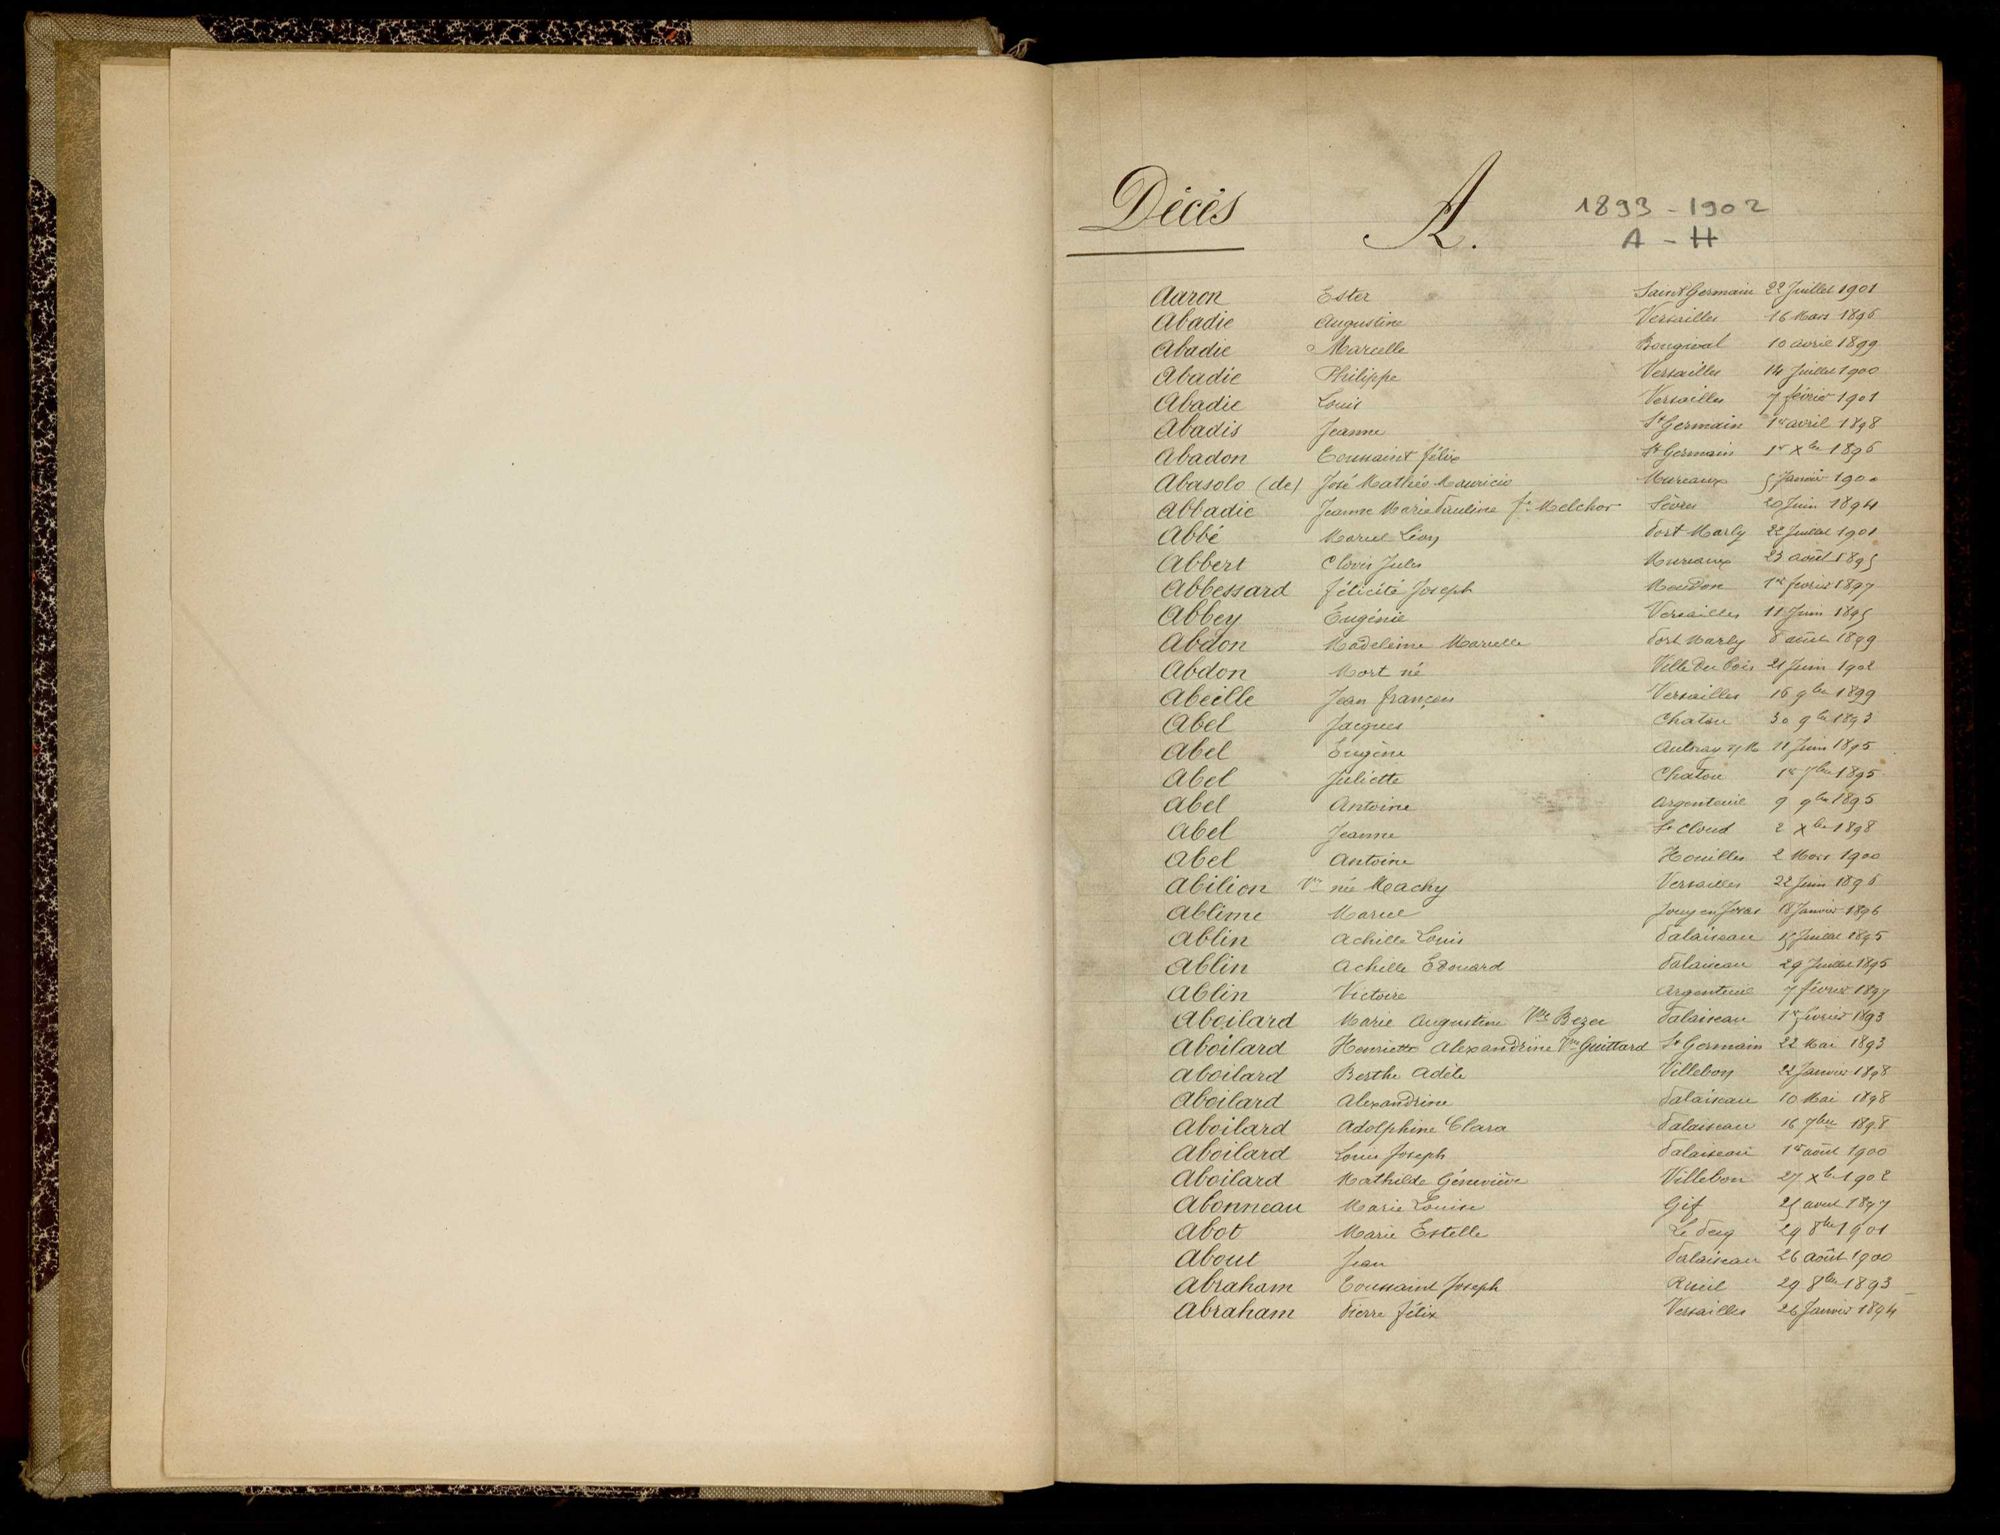 Décès A. 1893 - 1902
A - H
Aaron Ester Saint Germain 22 Juillet 1901
Abadie Augustine Versailles 16 Mars 1896
Abadie Marcelle Bougival 10 avril 1899
Abadie Philippe Versailles 14 Juillet 1900
Abadie Louis Versailles 7 février 1901
Abadis Jeanne St Germain 1er avril 1898
Abadon Toussaint félix St Germain 1er Xbre 1896
Abasolo (de) José Mathéo Mauricio Mureaux 5 Janvier 1900
Abbadie Jeanne Marie Pauline fe Melchor Sèvres 20 Juin 1894
Abbé Marcel Léon Port Marly 22 Juillet 1901
Abbert Clovis Jules Mureaux 23 août 1895
Abbessard félicité Joseph Meudon 1er février 1897
Abbey Eugénie Versailles 11 Juin 1895
Abdon Madeleine Marcelle Port Marly 8 août 1899
Abdon Mort né Ville du bois 21 Juin 1902
Abeille Jean françois Versailles 16 9bre 1899
Abel Jacques Chatou 30 9bre 1893
Abel Eugène Aulnay s/ 11 Juin 1895
Abel Juliette Chatou 1er 7bre 1895
Abel Antoine Argenteuil 9 9bre 1895
Abel Jeanne St Cloud 2 Xbre 1898
Abel Antoine Houilles 2 Mars 1900
Abilion Vve née Machy Versailles 22 Juin 1896
Ablime Marcel Jouy en Josas 18 Janvier 1896
Ablin Achille Louis Palaiseau Juillet 1895
Ablin Achille Edouard Palaiseau 29 Juillet 1895
Ablin Victoire Argenteuil 7 février 1897
Aboilard Marie Augustine Vve Bezer Palaiseau 1er février 1893
Aboilard Henriette Alexandrine Vve Guittard St Germain 22 Mai 1893
Aboilard Berthe Adèle Villebon 22 Janvier 1898
Aboilard Alexandrine Palaiseau 10 Mai 1898
Aboilard Adolphine Clara Palaiseau 16 7bre 1898
Aboilard Louis Joseph Palaiseau 1er août 1900
Aboilard Mathilde Géneviève Villebon 27 Xbre 1902
Abonneau Marie Louise Gif 25 1897
Abot Marie Estelle Le Pecq 29 8bre 1901
About Jean Palaiseau 26 août 1900
Abraham Toussaint Joseph Rueil 29 8bre 1893
Abraham Pierre félix Versailles 26 Janvier 1894